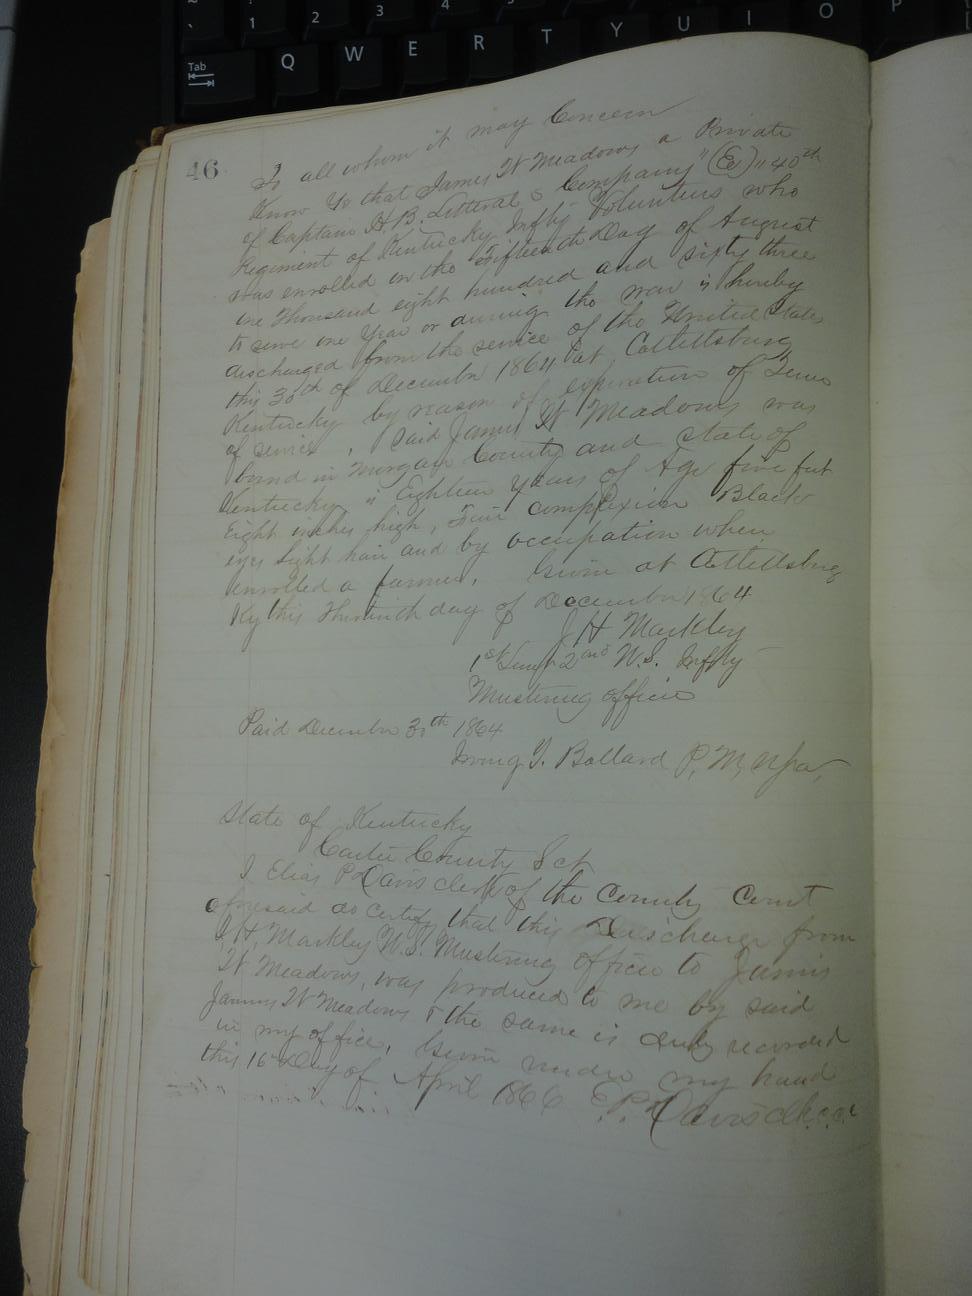 ~
`
1
2
3
4
5
Tab
Q W E R T Y U I O P
46
To all whom it may Concern
Know Ye that James W Meadows a Private
of Captain H. B. Litteral s Company "(E)" 40th
Regiment of Kentucky Infty Volunteers who
was enrolled on the Fifteenth Day of August
one thousand eight hundred and sixty three
to serve one Year or during the war is hereby
discharged from the service of the United States
this 30th of December 1864 at Catlettsburg
Kentucky by reason of expiration of Term
of service, Said James W Meadows was
born in Morgan County and State of
Kentucky " Eighteen Years of Age five feet
Eight inches high, Fair complexion Black
eyes light hair and by occupation when
enrolled a farmer. Given at Catlettsburg
Ky this Thirtieth day of December 1864
J H Markley
1st Lieut 2nd U.S. Infty
Mustering officer
Paid December 30th 1864
Irving Ballard P, M,
State of Kentucky
Carter County Sct
I Elias P Davis clerk of the County Court
aforesaid do certify that this Discharge from
J, H, Markley U.S. Mustering officer to James
W Meadows, was produced to me by said
James W Meadows & the same is duly recorded
in my office, Given under my hand
this 16 Day of April 1866 E. P. Davis